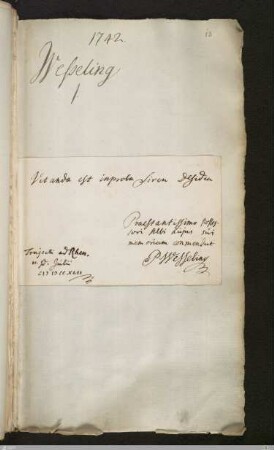 1742
Weßeling
Vitanda est improba Siren Desidia
Praestantissimo possessori
Albi hujus sui
memoriam commendat
PWesseling
Trajecti ad Rhen.
Julii